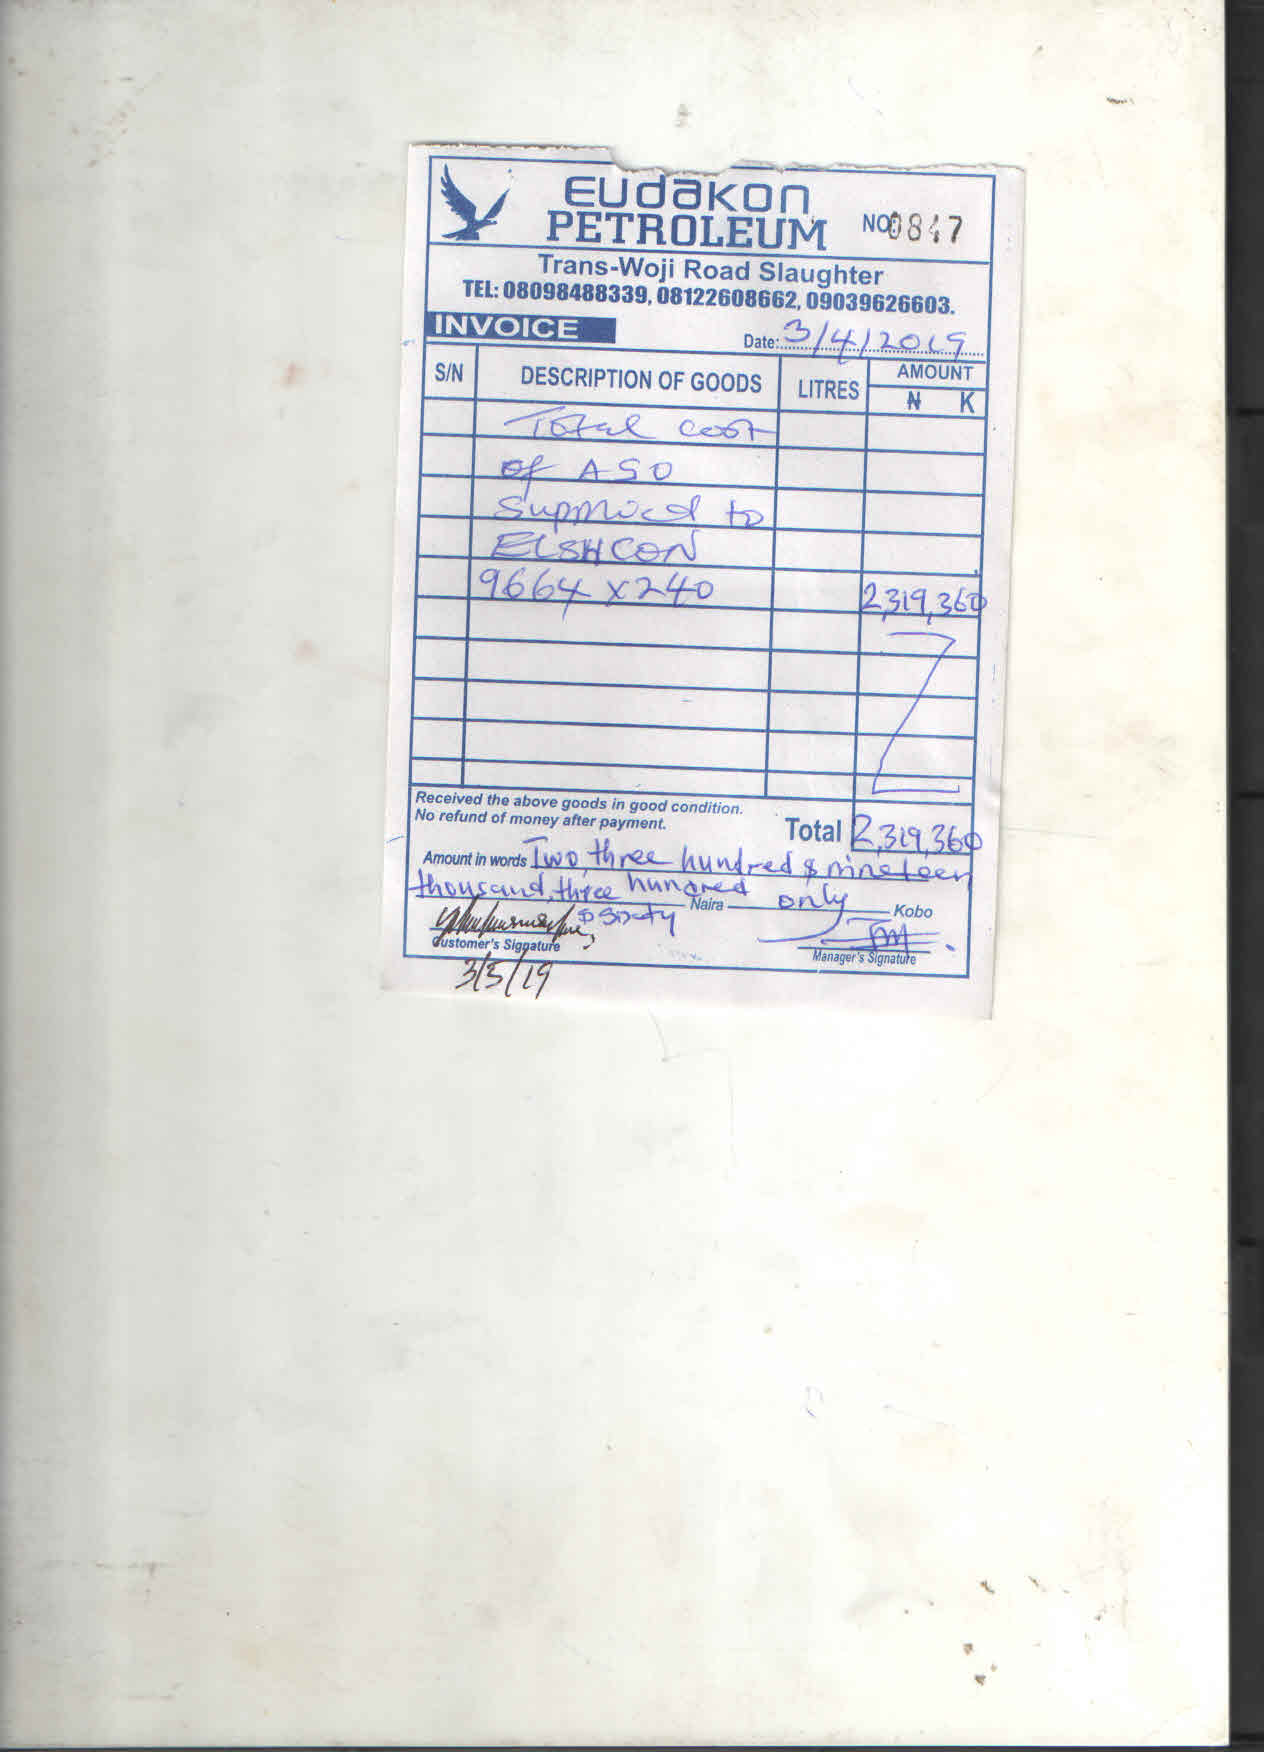 EUdaKON
PETROLEUM
NO 0847
Trans-Woji Road Slaughter
TEL: 08098488339, 08122608662, 09039626603.
INVOICE
Date: 3/4/2019
S/N DESCRIPTION OF GOODS LITRES AMOUNT
₦ K
Total cost
of ASO
Supplied to
ELSHCON
9664 x 240 2,319,360
Received the above goods in good condition.
No refund of money after payment.
Total 2,319,360
Amount in words Two, three hundred & nineteen
thousand, three hundred Naira only Kobo
& sixty
Customer's Signature
Manager's Signature
3/5/19